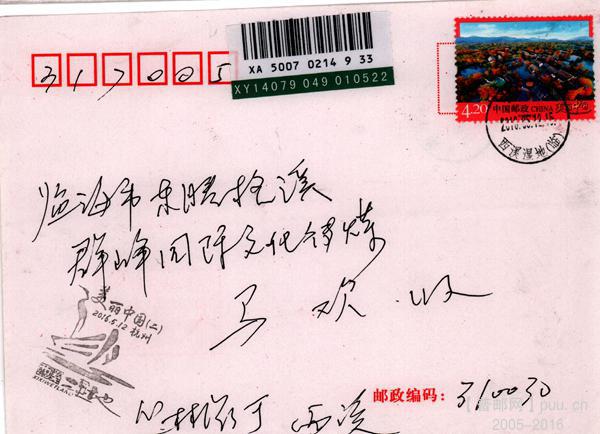 317005
XA 5007 0214 9 33
XY14079 049 010522
4.20 中国邮政 CHINA
临海市东塍桩溪
群峰国际文化传媒
马欢 收
美丽中国(二)
2016.5.12 杭州
XIXIWETLAND
邮政编码：310030
西溪
【普邮网】puu.cn
2005-2016